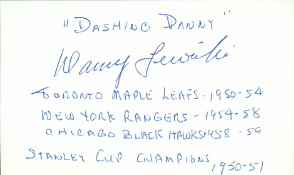 "DASHING DANNY"
Danny Lewicki
TORONTO MAPLE LEAFS - 1950-54
NEW YORK RANGERS - 1954-58
CHICAGO BLACK HAWKS 1958-59
STANLEY CUP CHAMPIONS
1950-51